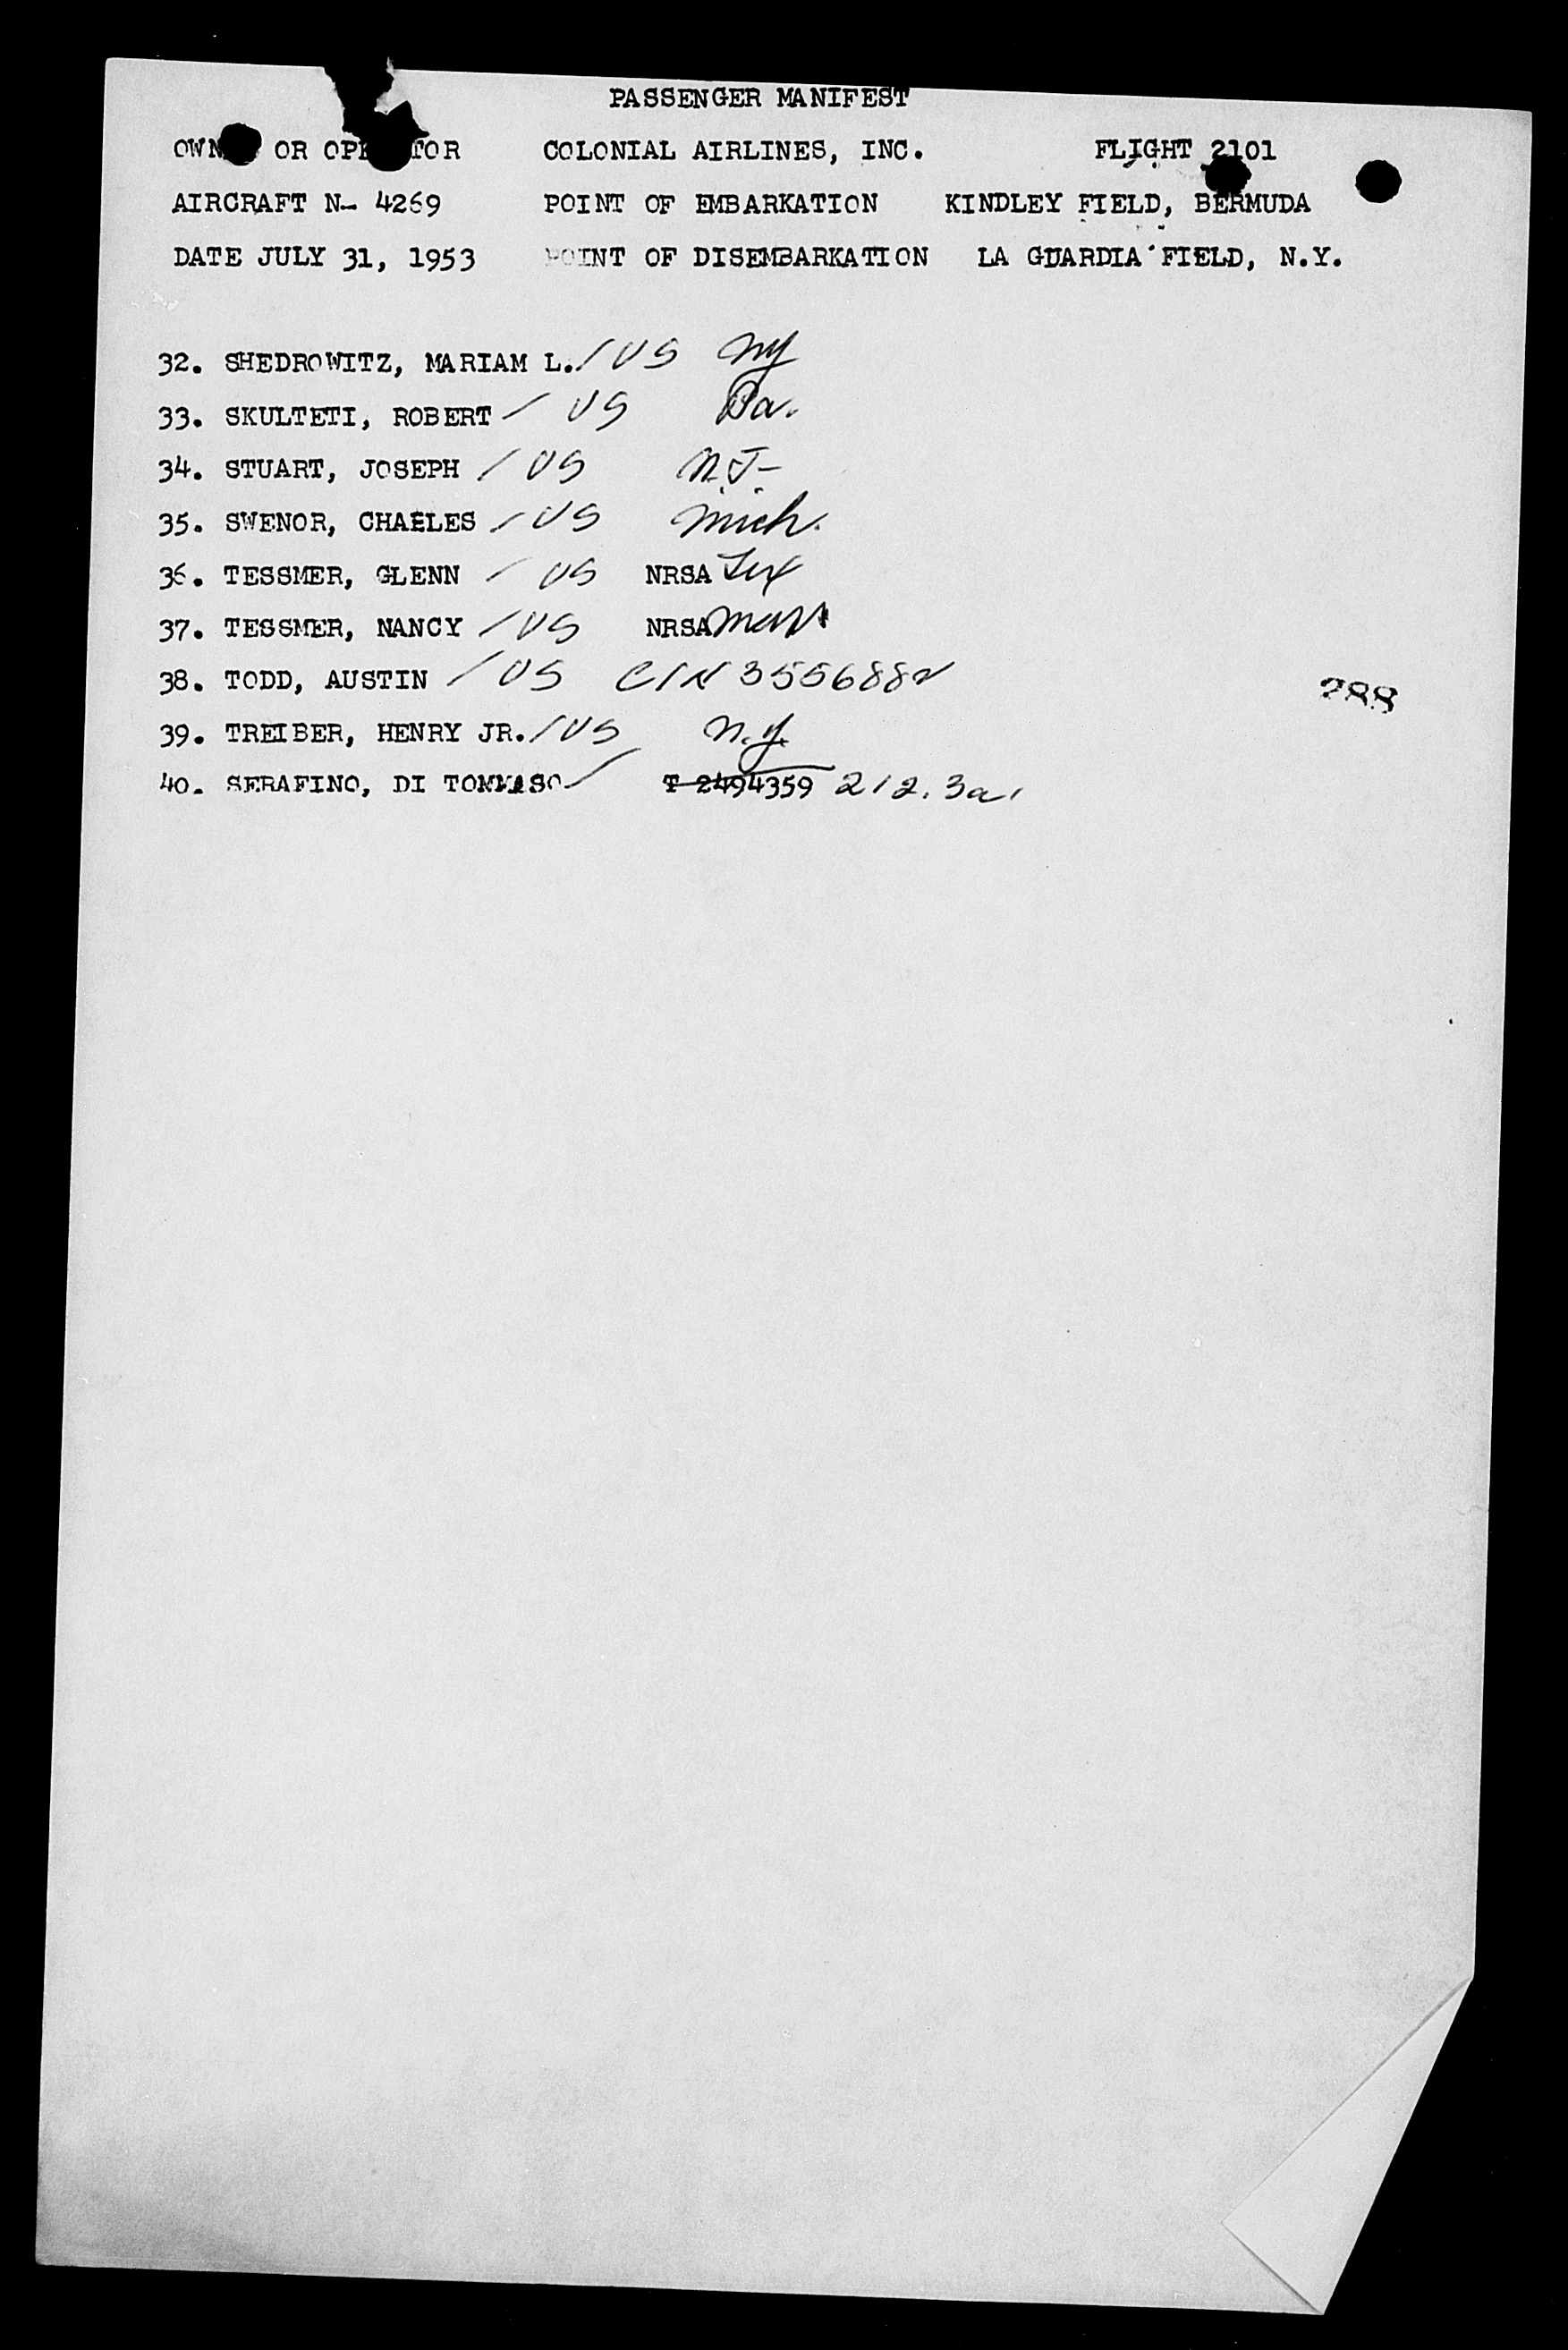 PASSENGER MANIFEST
OWN OR OP TOR COLONIAL AIRLINES, INC. FLIGHT 2101
AIRCRAFT N- 4269 POINT OF EMBARKATION KINDLEY FIELD, BERMUDA
DATE JULY 31, 1953 POINT OF DISEMBARKATION LA GUARDIA FIELD, N.Y.
32. SHEDROWITZ, MARIAM L. / US NY
33. SKULTETI, ROBERT / US Pa.
34. STUART, JOSEPH / US N.J.
35. SWENOR, CHAELES / US Mich.
36. TESSMER, GLENN / US NRSA Tex
37. TESSMER, NANCY / US NRSA Mass
38. TODD, AUSTIN / US CIN 3556882
288
39. TREIBER, HENRY JR. / US N.Y.
40. SERAFINO, DI TOMMASO / T 2494359 212.3a